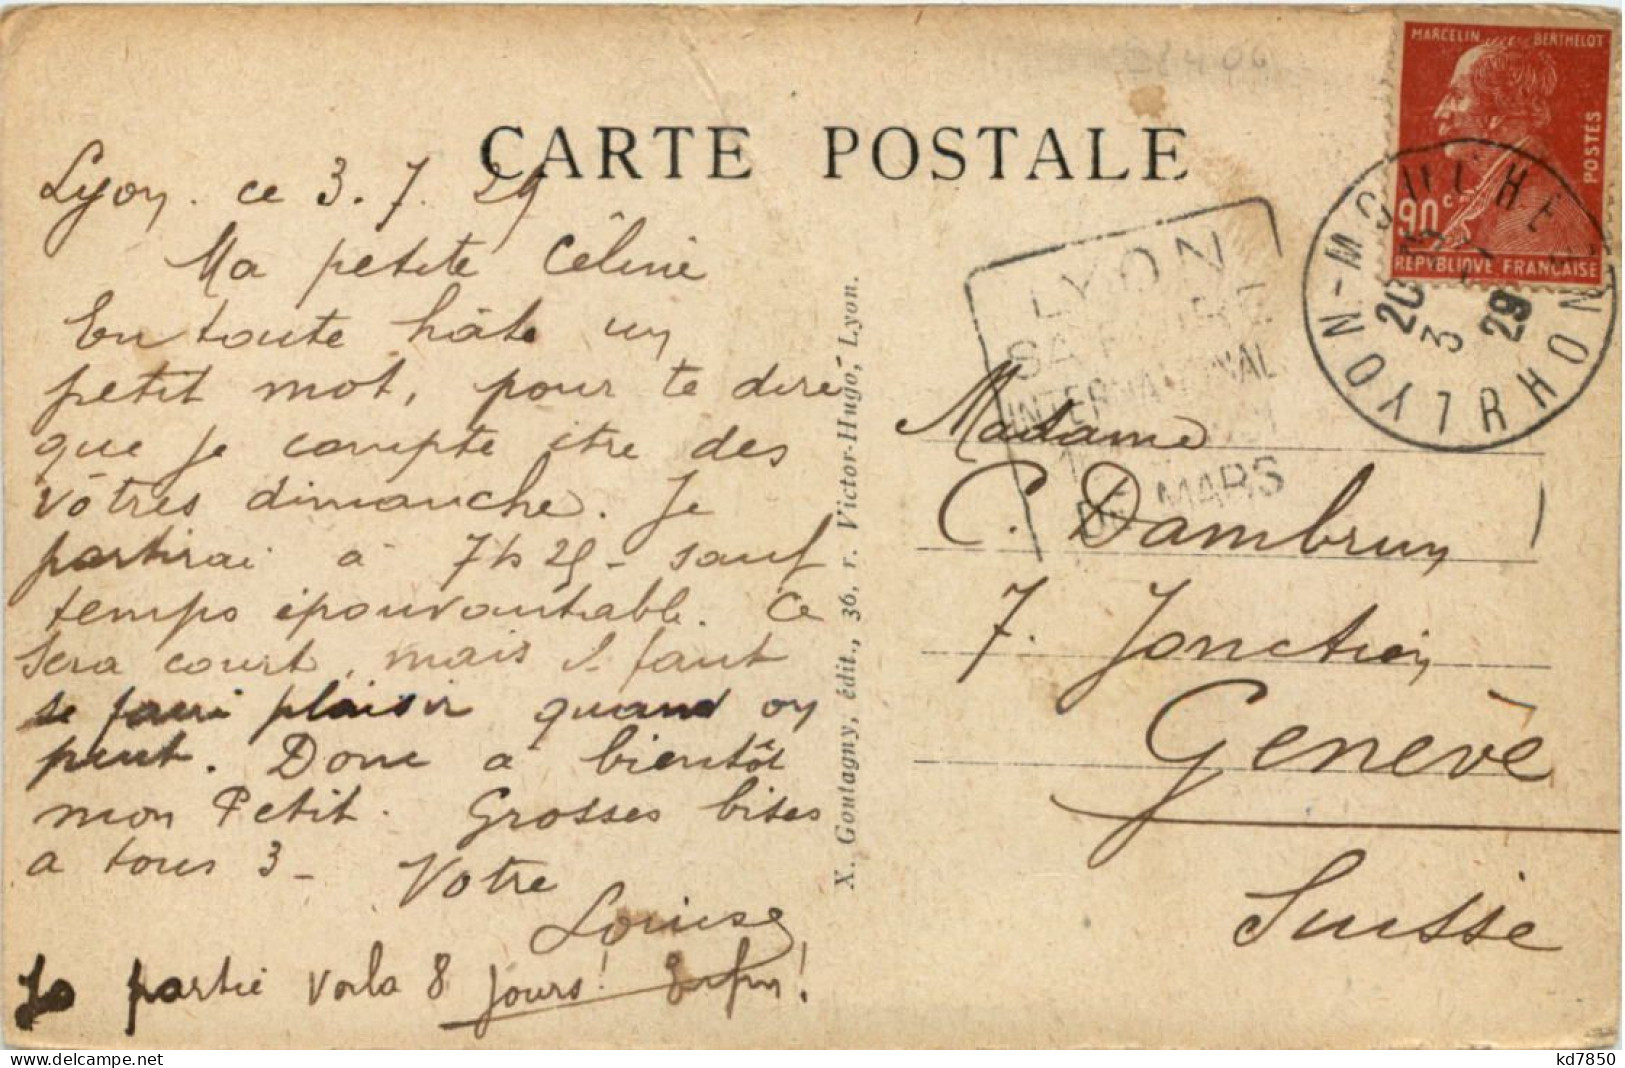 CARTE POSTALE
Lyon. ce 3.7.29
Ma petite Céline
En toute hâte un
petit mot, pour te dire
que je compte être des
vôtres dimanche. Je
partirai à 7h25 - sauf
temps épouvantable. Ce
sera court, mais il faut
se faire plaisir quand on
peut. Donc à bientôt
mon Petit. Grosses bises
a tous 3 - Votre
Louise
Jo partie voila 8 jours! Enfin!
X. Goutagny, édit., 36, r. Victor-Hugo, Lyon.
MARCELIN BERTHELOT
POSTES
90c
REPVBLIQUE FRANÇAISE
LYON-MONCHAT RHONE
20
3 7
29
LYON
INTERNATIONAL
DE MARS
Madame
C. Dambrun
7. Jonction
Genève
Suisse
kd7850